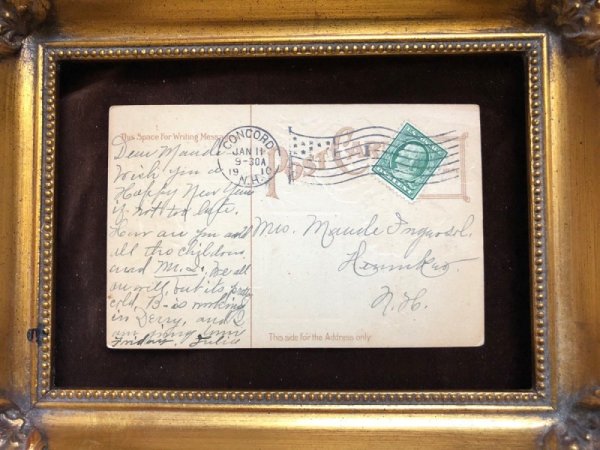 This Space For Writing Messages
Dear Maude
Wish you a
Happy New Year
if not too late.
How are you and
all the children
and Mr. I., we all
are well, but its pretty
cold, B- is working
in Derry, and I
am going
Friday. Julia
CONCORD
JAN 11
9-30A
1910
N.H.
POST CARD
Mrs. Maude Ingersol.
Henniker
N.H.
This side for the Address only.